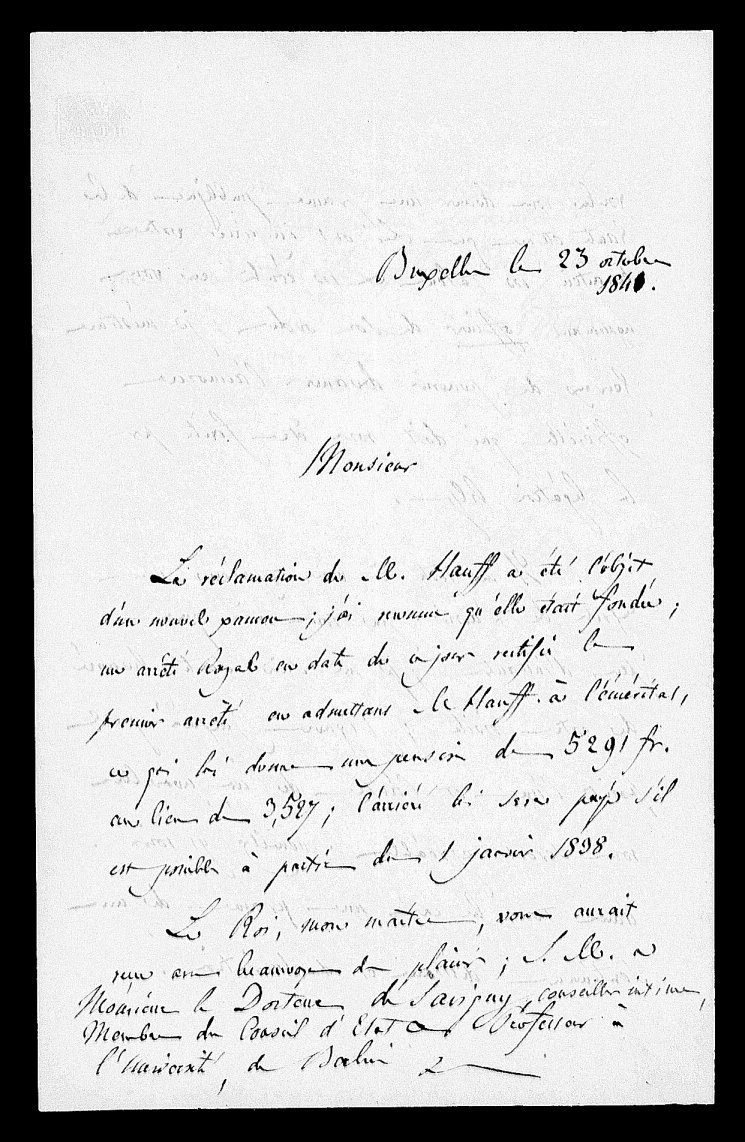 Bruxelles le 23 octobre
1840.
Monsieur
La réclamation de M. Hauff a été l'objet
d'un nouvel examen ; j'ai reconnu qu'elle était fondée ;
un arrêté Royal en date de ce jour rectifie le
premier arrêté en admettant M. Hauff à l'éméritat,
ce qui lui donne une pension de 5291 fr.
au lieu de 3,527 ; l'arriéré lui sera payé s'il
est possible à partir du 1 janvier 1838.
Le Roi, mon maître, vous aurait
vu avec beaucoup de plaisir ; S. M. a
Monsieur le Docteur de Savigny, conseiller intime,
Membre du Conseil d'Etat et Professeur à
l'Université, de Berlin